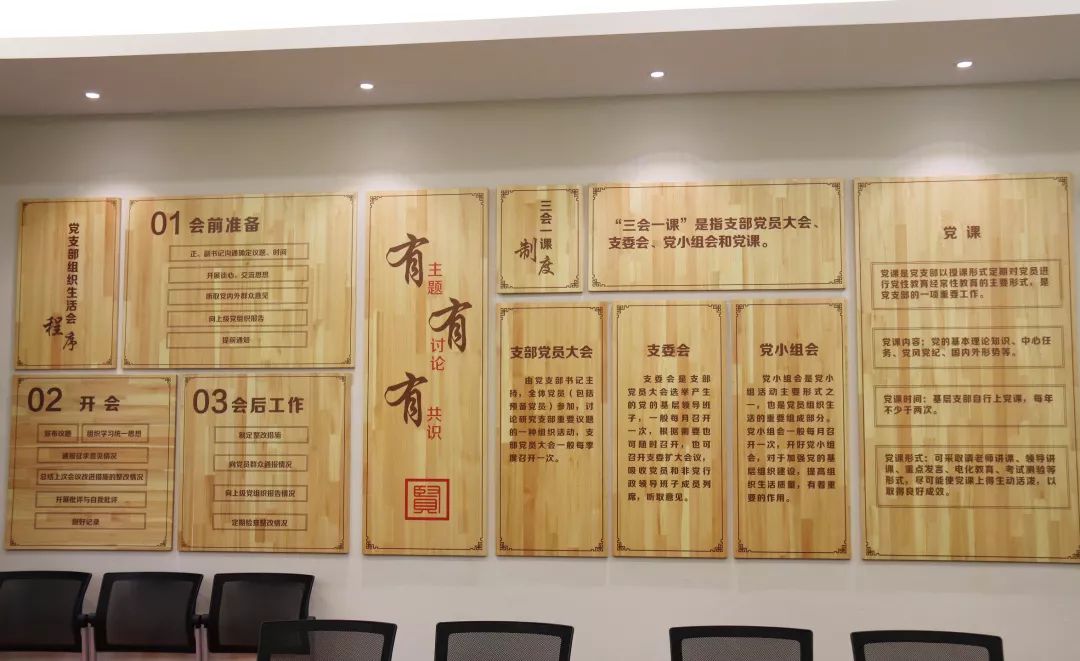 党支部组织生活会
程序
01 会前准备
正、副书记沟通确定议题、时间
开展谈心、交流思想
听取党内外群众意见
向上级党组织报告
提前通知
02 开会
颁布议题 组织学习统一思想
通报征求意见情况
总结上次会议改进措施的整改情况
开展批评与自我批评
做好记录
03 会后工作
制定整改措施
向党员群众通报情况
向上级党组织报告情况
定期检查整改情况
有主题
有讨论
有共识
賢
三会一课
制度
“三会一课”是指支部党员大会、
支委会、党小组会和党课。
支部党员大会
由党支部书记主
持，全体党员（包括
预备党员）参加，讨
论研究支部重要议题
的一种组织活动，支
部党员大会一般每季
度召开一次。
支委会
支委会是支部
党员大会选举产生
的党的基层领导班
子，一般每月召开
一次，根据需要也
可随时召开，也可
召开支委扩大会议，
吸收党员和非党行
政领导班子成员列
席，听取意见。
党小组会
党小组会是党小
组活动主要形式之
一，也是党员组织生
活的重要组成部分。
党小组会一般每月召
开一次，开好党小组
会，对于加强党的基
层组织建设，提高组
织生活质量，有着重
要的作用。
党课
党课是党支部以授课形式定期对党员进
行党性教育经常性教育的主要形式，是
党支部的一项重要工作。
党课内容：党的基本理论知识、中心任
务、党风党纪、国内外形势等。
党课时间：基层支部自行上党课，每年
不少于两次。
党课形式：可采取请老师讲课、领导讲
课、重点发言、电化教育、考试测验等
形式，尽可能使党课上得生动活泼，以
取得良好成效。